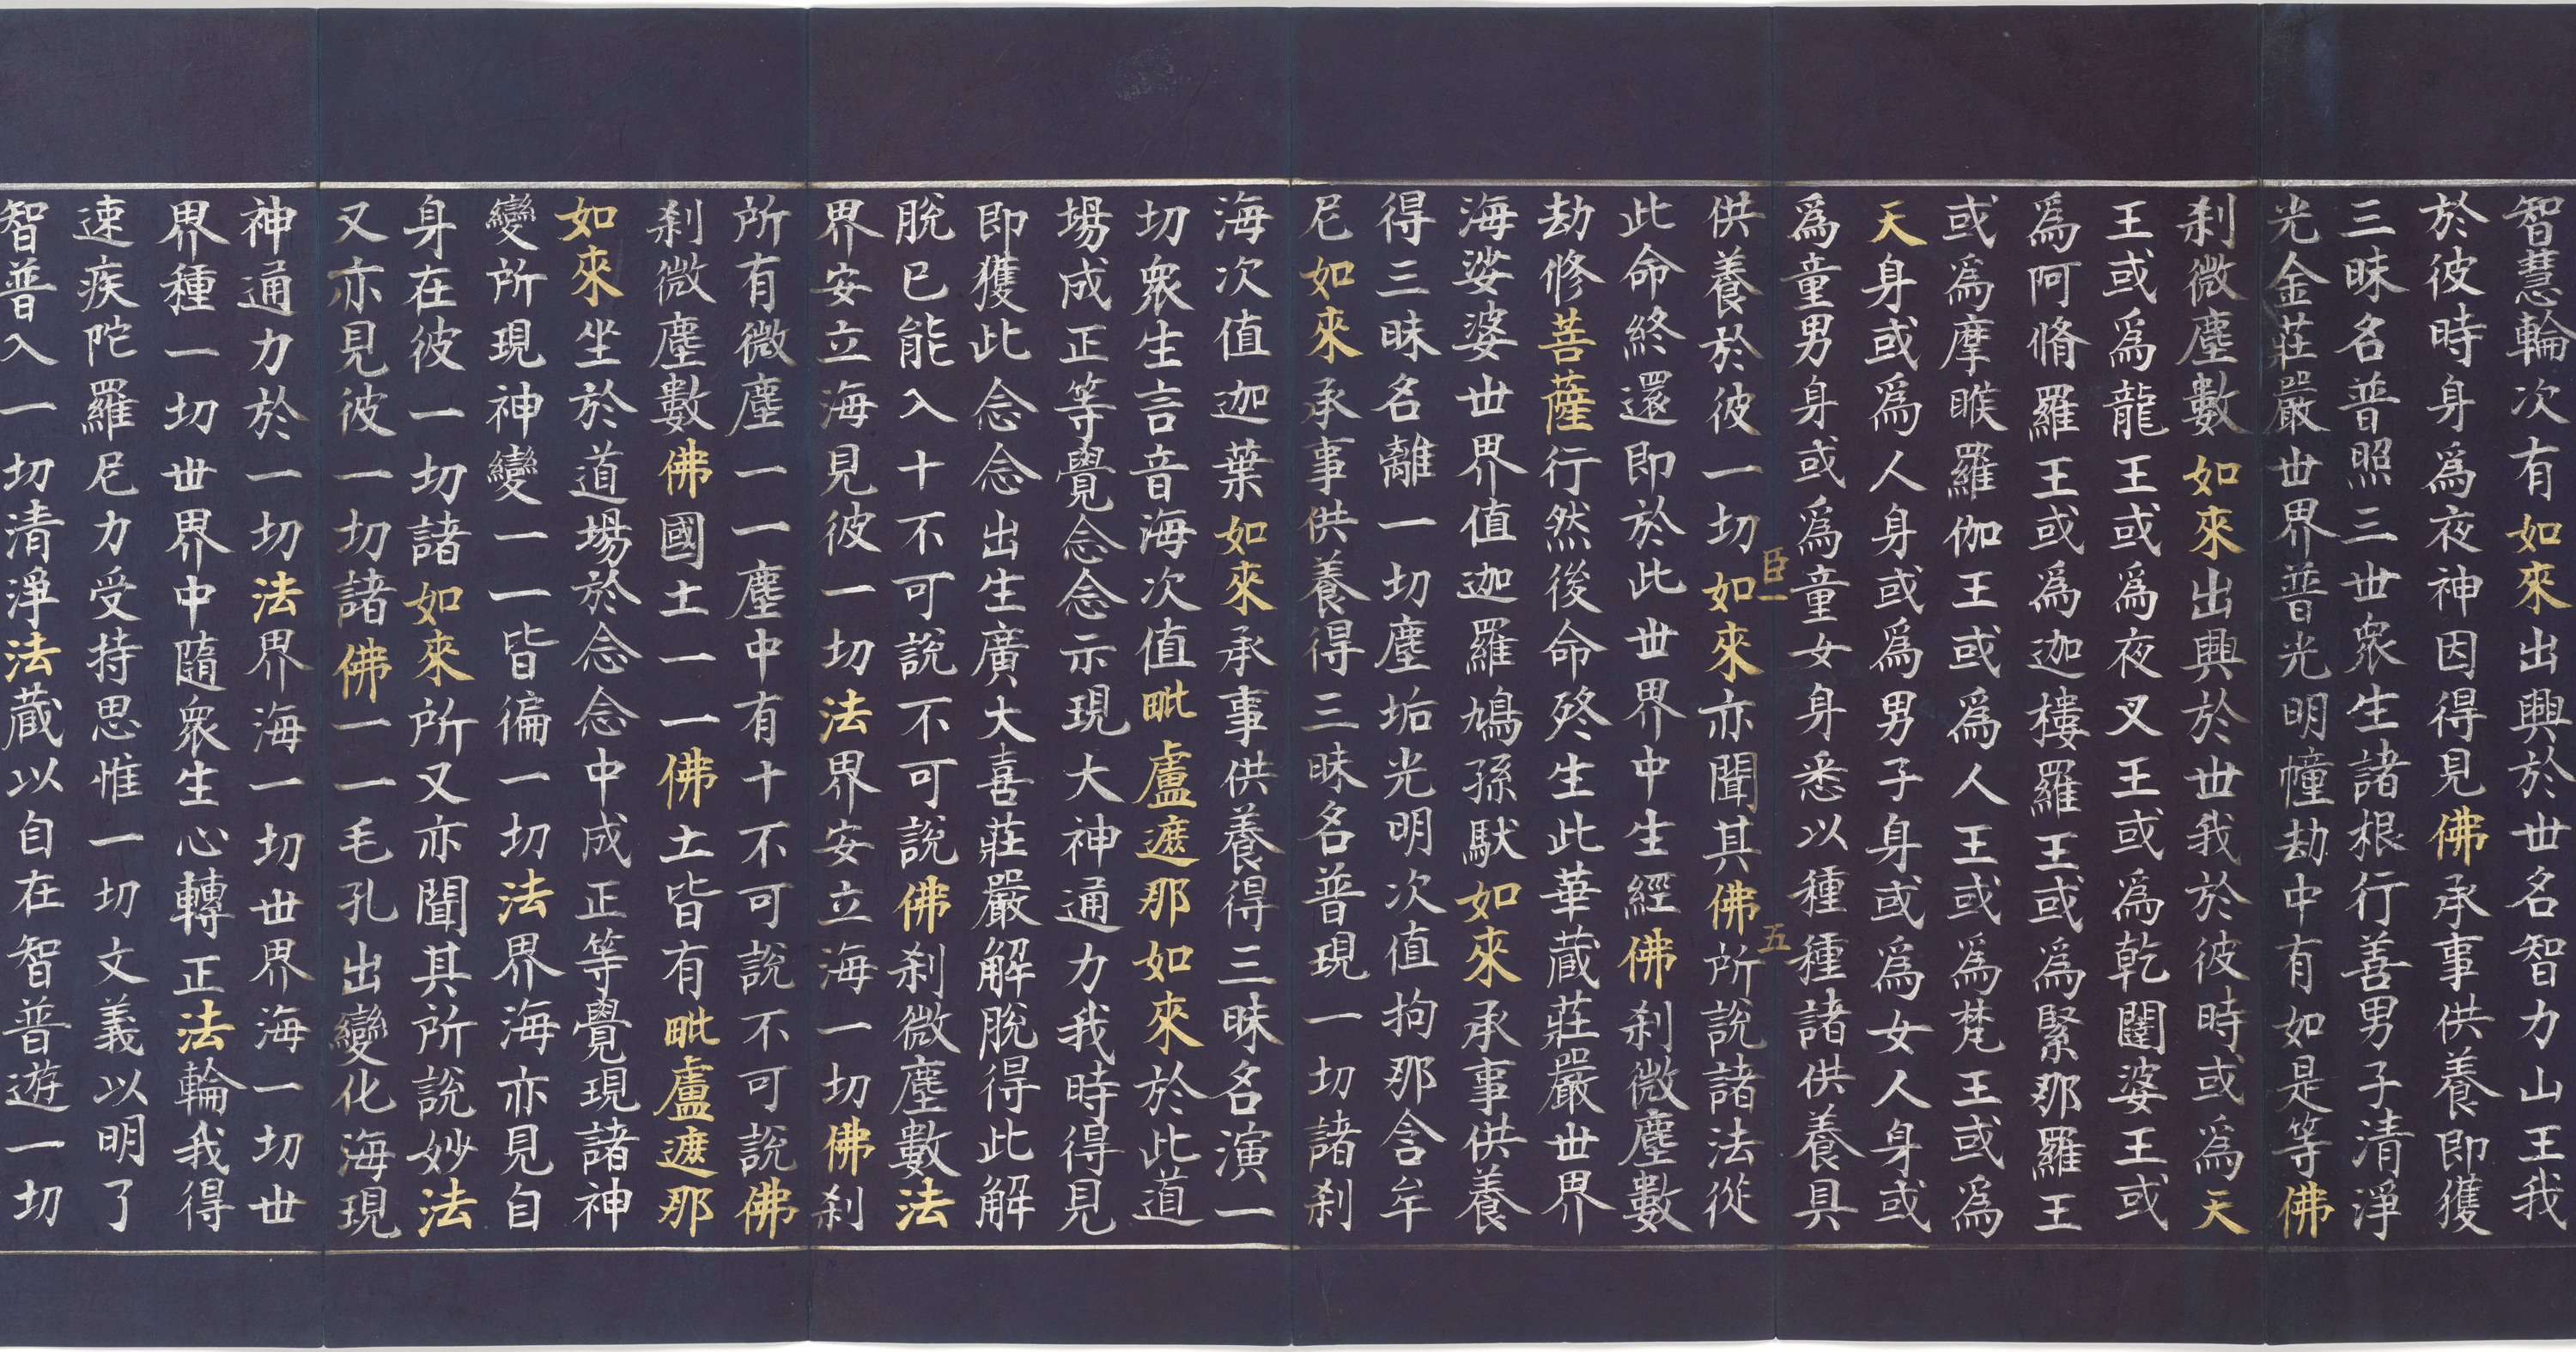 智慧輪次有如來出興於世名智力山王我
於彼時身爲夜神因得見佛承事供養即獲
三昧名普照三世衆生諸根行善男子清淨
光金莊嚴世界普光明幢劫中有如是等佛
刹微塵數如來出興於世我於彼時或爲天
王或爲龍王或爲夜叉王或爲乾闥婆王或
爲阿脩羅王或爲迦樓羅王或爲緊那羅王
或爲摩睺羅伽王或爲人王或爲梵王或爲
天身或爲人身或爲男子身或爲女人身或
爲童男身或爲童女身悉以種種諸供養具
臣一 五
供養於彼一切如來亦聞其佛所說諸法從
此命終還即於此世界中生經佛刹微塵數
劫修菩薩行然後命終生此華藏莊嚴世界
海娑婆世界值迦羅鳩孫馱如來承事供養
得三昧名離一切塵垢光明次值拘那含牟
尼如來承事供養得三昧名普現一切諸刹
海次值迦葉如來承事供養得三昧名演一
切衆生言音海次值毗盧遮那如來於此道
場成正等覺念念示現大神通力我時得見
即獲此念念出生廣大喜莊嚴解脫得此解
脫已能入十不可說不可說佛刹微塵數法
界安立海見彼一切法界安立海一切佛刹
所有微塵一一塵中有十不可說不可說佛
刹微塵數佛國土一一佛土皆有毗盧遮那
如來坐於道場於念念中成正等覺現諸神
變所現神變一一皆徧一切法界海亦見自
身在彼一切諸如來所又亦聞其所說妙法
又亦見彼一切諸佛一一毛孔出變化海現
神通力於一切法界海一切世界海一切世
界種一切世界中隨衆生心轉正法輪我得
速疾陀羅尼力受持思惟一切文義以明了
智普入一切清淨法藏以自在智普遊一切